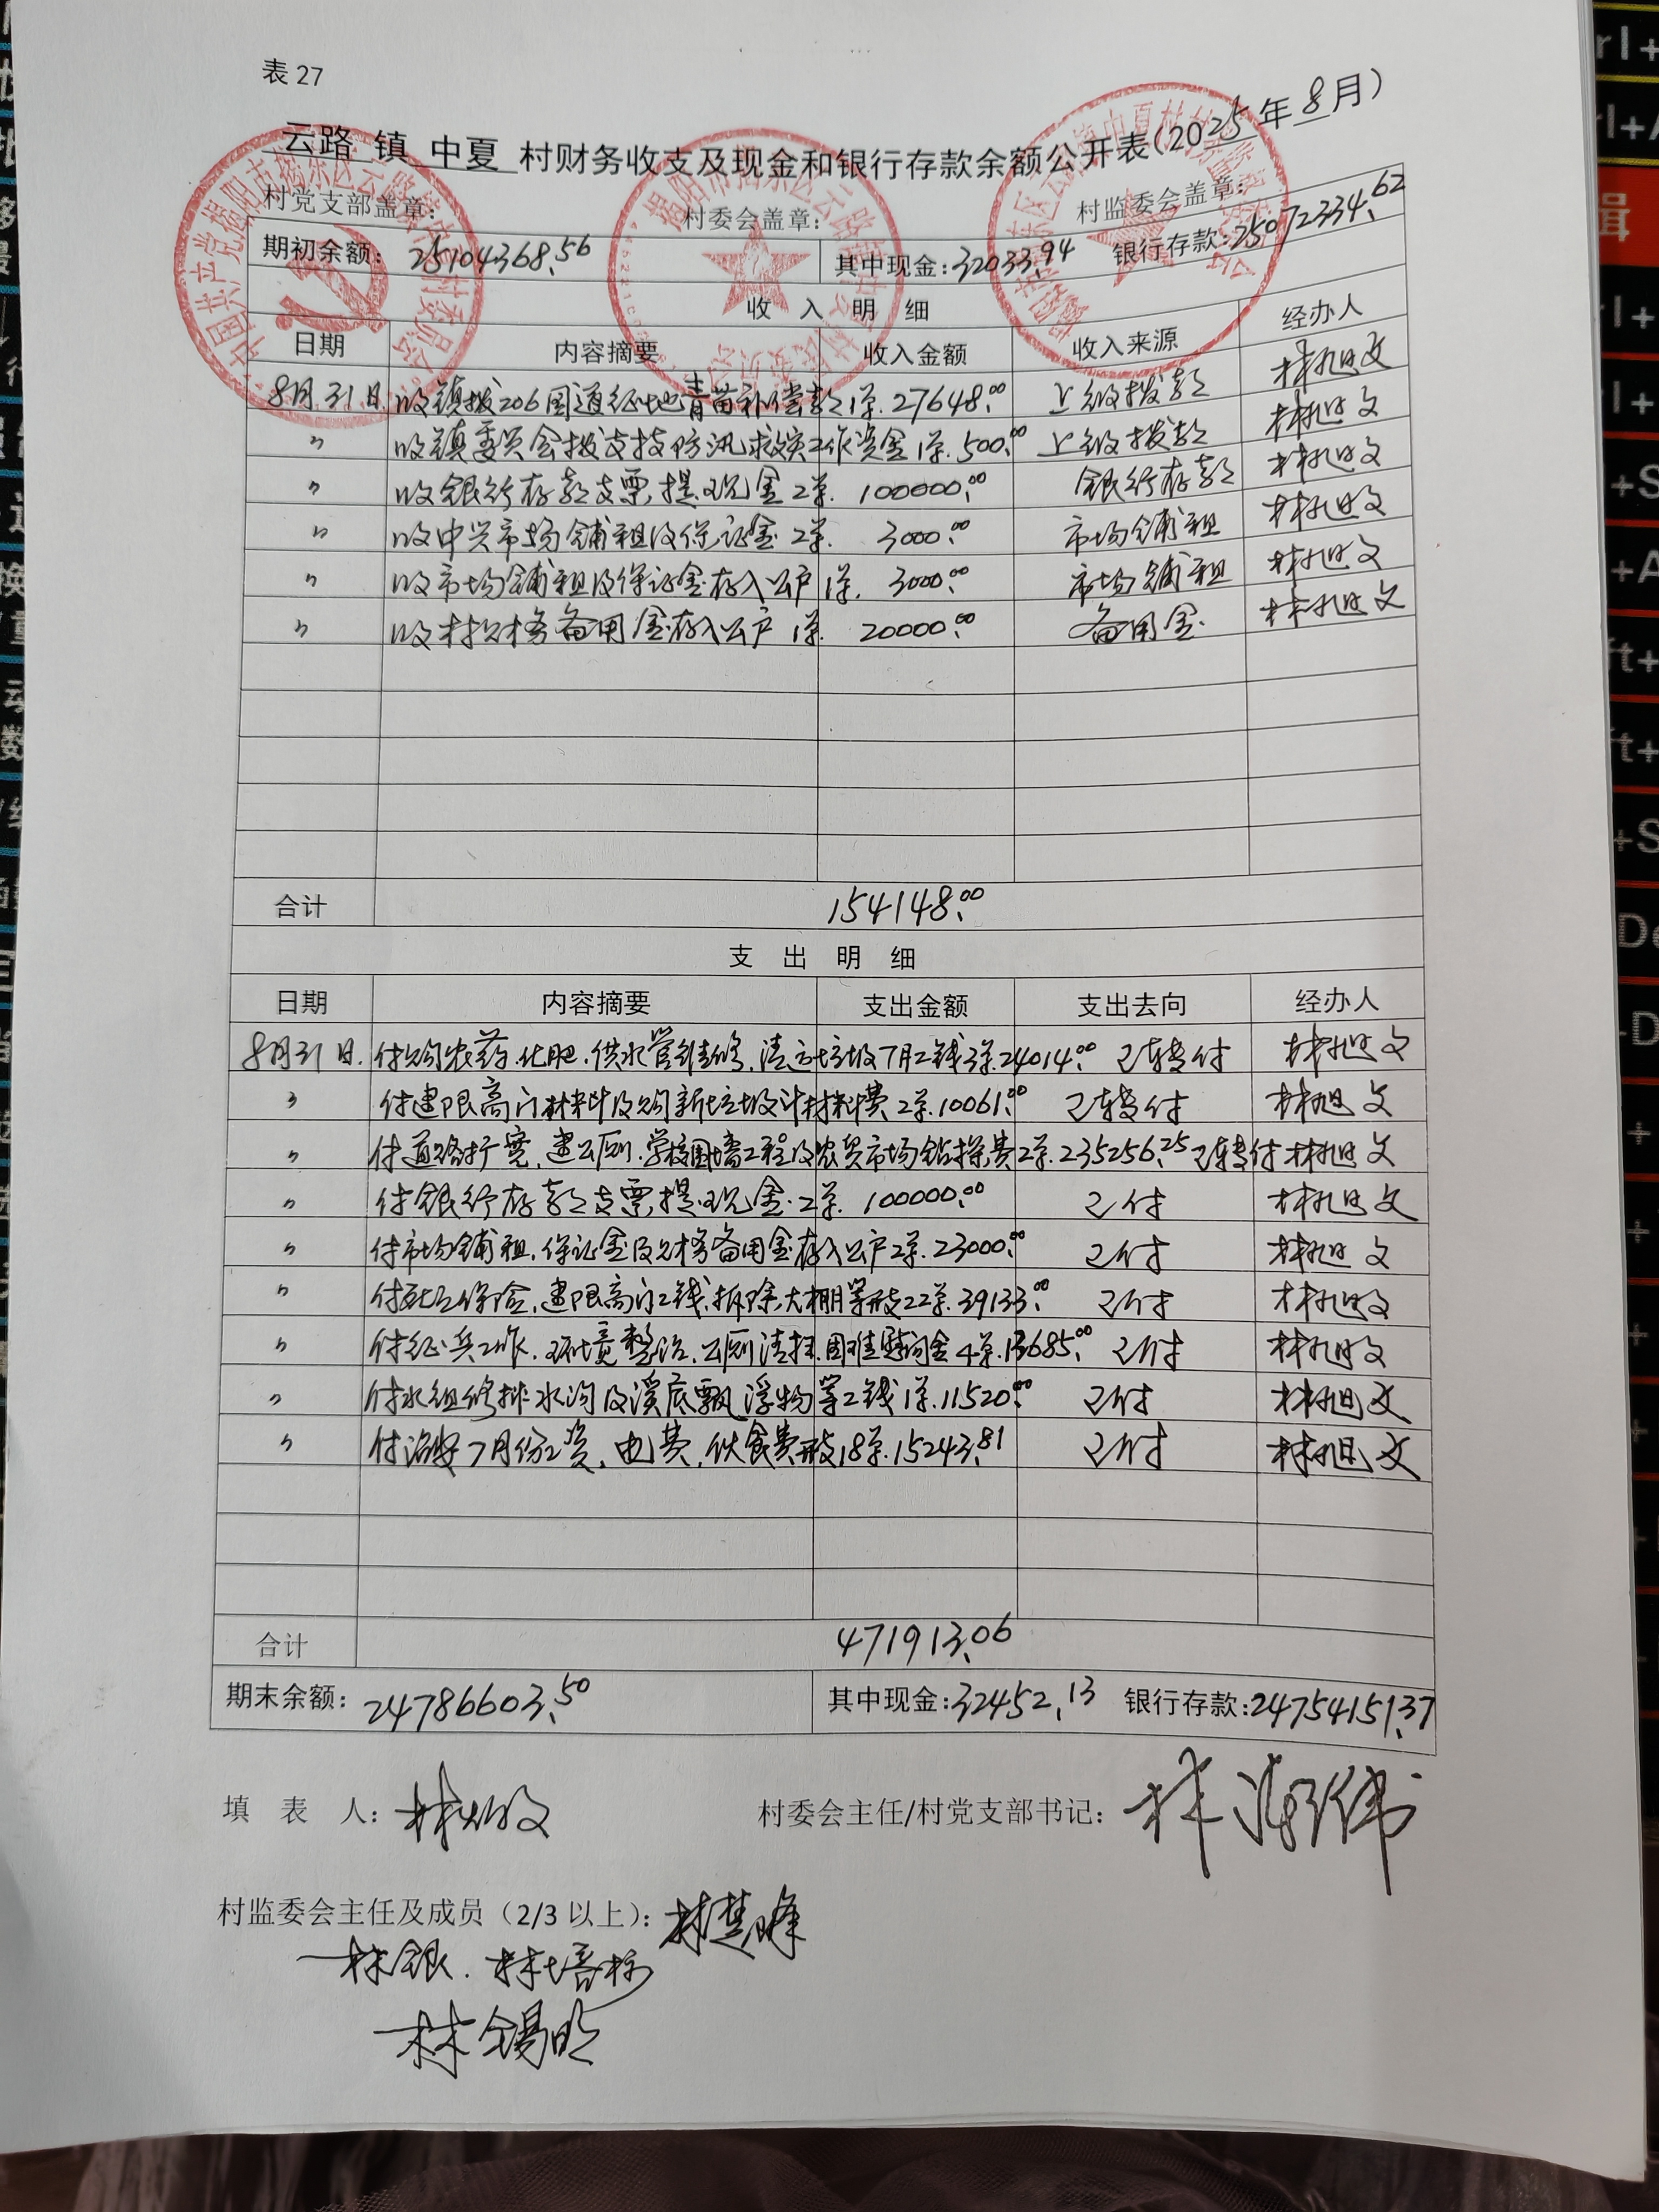 表 27
云路 镇 中夏 村财务收支及现金和银行存款余额公开表(2025年8月)
村党支部盖章: 村委会盖章: 村监委会盖章:
期初余额: 25104368.56 其中现金:32033.94 银行存款:25072334.62
收 入 明 细
日期 内容摘要 收入金额 收入来源 经办人
8月31日 收镇拨206国道征地青苗补偿款1单. 27648.00 上级拨款 林旭文
〃 收镇委员会拨支持防汛救灾工作资金1单. 500.00 上级拨款 林旭文
〃 收银行存款支票提现金2单. 100000.00 银行存款 林旭文
〃 收中兴市场铺租及保证金2单. 3000.00 市场铺租 林旭文
〃 收市场铺租及保证金存入公户1单. 3000.00 市场铺租 林旭文
〃 收村财务备用金存入公户1单. 20000.00 备用金. 林旭文
合计 154148.00
支 出 明 细
日期 内容摘要 支出金额 支出去向 经办人
8月31日. 付购农药.化肥.供水管维修.清运垃圾7月工钱3单.24014.00 已转付 林旭文
〃 付建限高门材料及购新垃圾斗材料费2单.10061.00 已转付 林旭文
〃 付道路扩宽.建公厕.学校围墙工程及农贸市场钻探费2单.235256.25 已转付 林旭文
〃 付银行存款支票提现金.2单. 100000.00 已付 林旭文
〃 付市场铺租.保证金及财务备用金存入公户2单.23000.00 已付 林旭文
〃 付社工保险.建限高门工钱.拆除大棚等形支22单.39133.00 已付 林旭文
〃 付征兵工作.环境整治.公厕清扫.困难慰问金4单.13685.00 已付 林旭文
〃 付水组修排水沟及溪底飘浮物等工钱1单.11520.00 已付 林旭文
〃 付治安7月份工资.电费.伙食费形支18单.15243.81 已付 林旭文
合计 471913.06
期末余额: 24786603.50 其中现金:32452.13 银行存款:24754151.37
填 表 人: 村委会主任/村党支部书记:
村监委会主任及成员(2/3 以上): 林楚峰
林银. 林培标
林锡明